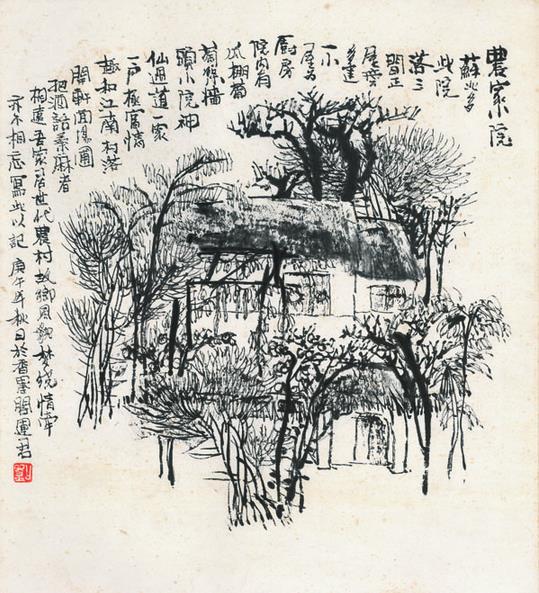 農家小院
蘇北多
此院
落三
間正
屋旁
多建
一小
屋為
廚房
院内有
瓜棚葡
萄綠墻
頭小院神
仙過道一家
一户極富情
趣和江南村落
開軒面場圃
把酒話桑麻者
相 吾家居世代農村故鄉風貌梦 情牽
亦不相忘寫此以記 庚午年秋日於香墨閣運